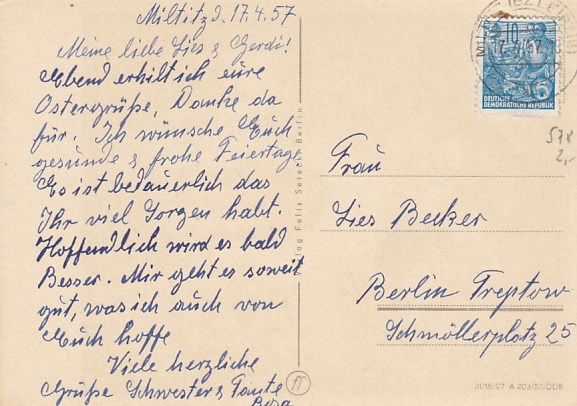 Miltitz d. 17.4.57
Meine liebe Lies & Gerdi!
Ebend erhilt ich eure
Ostergrüße, Danke da
für. Ich wünsche Euch
gesunde & frohe Feiertage
Es ist bedauerlich das
Ihr viel Sorgen habt.
Hoffendlich wird es bald
Besser. Mir geht es soweit
gut, was ich auch von
Euch hoffe
Viele herzliche
Grüße Schwester & Tante
Rosa
Verlag Felix Setecki Berlin
10
DEUTSCHE
DEMOKRATISCHE REPUBLIK
578
2,-
Frau
Lies Becker
Berlin Treptow
Schmöllerplatz 25
III/18/97 A 203/57/DDR